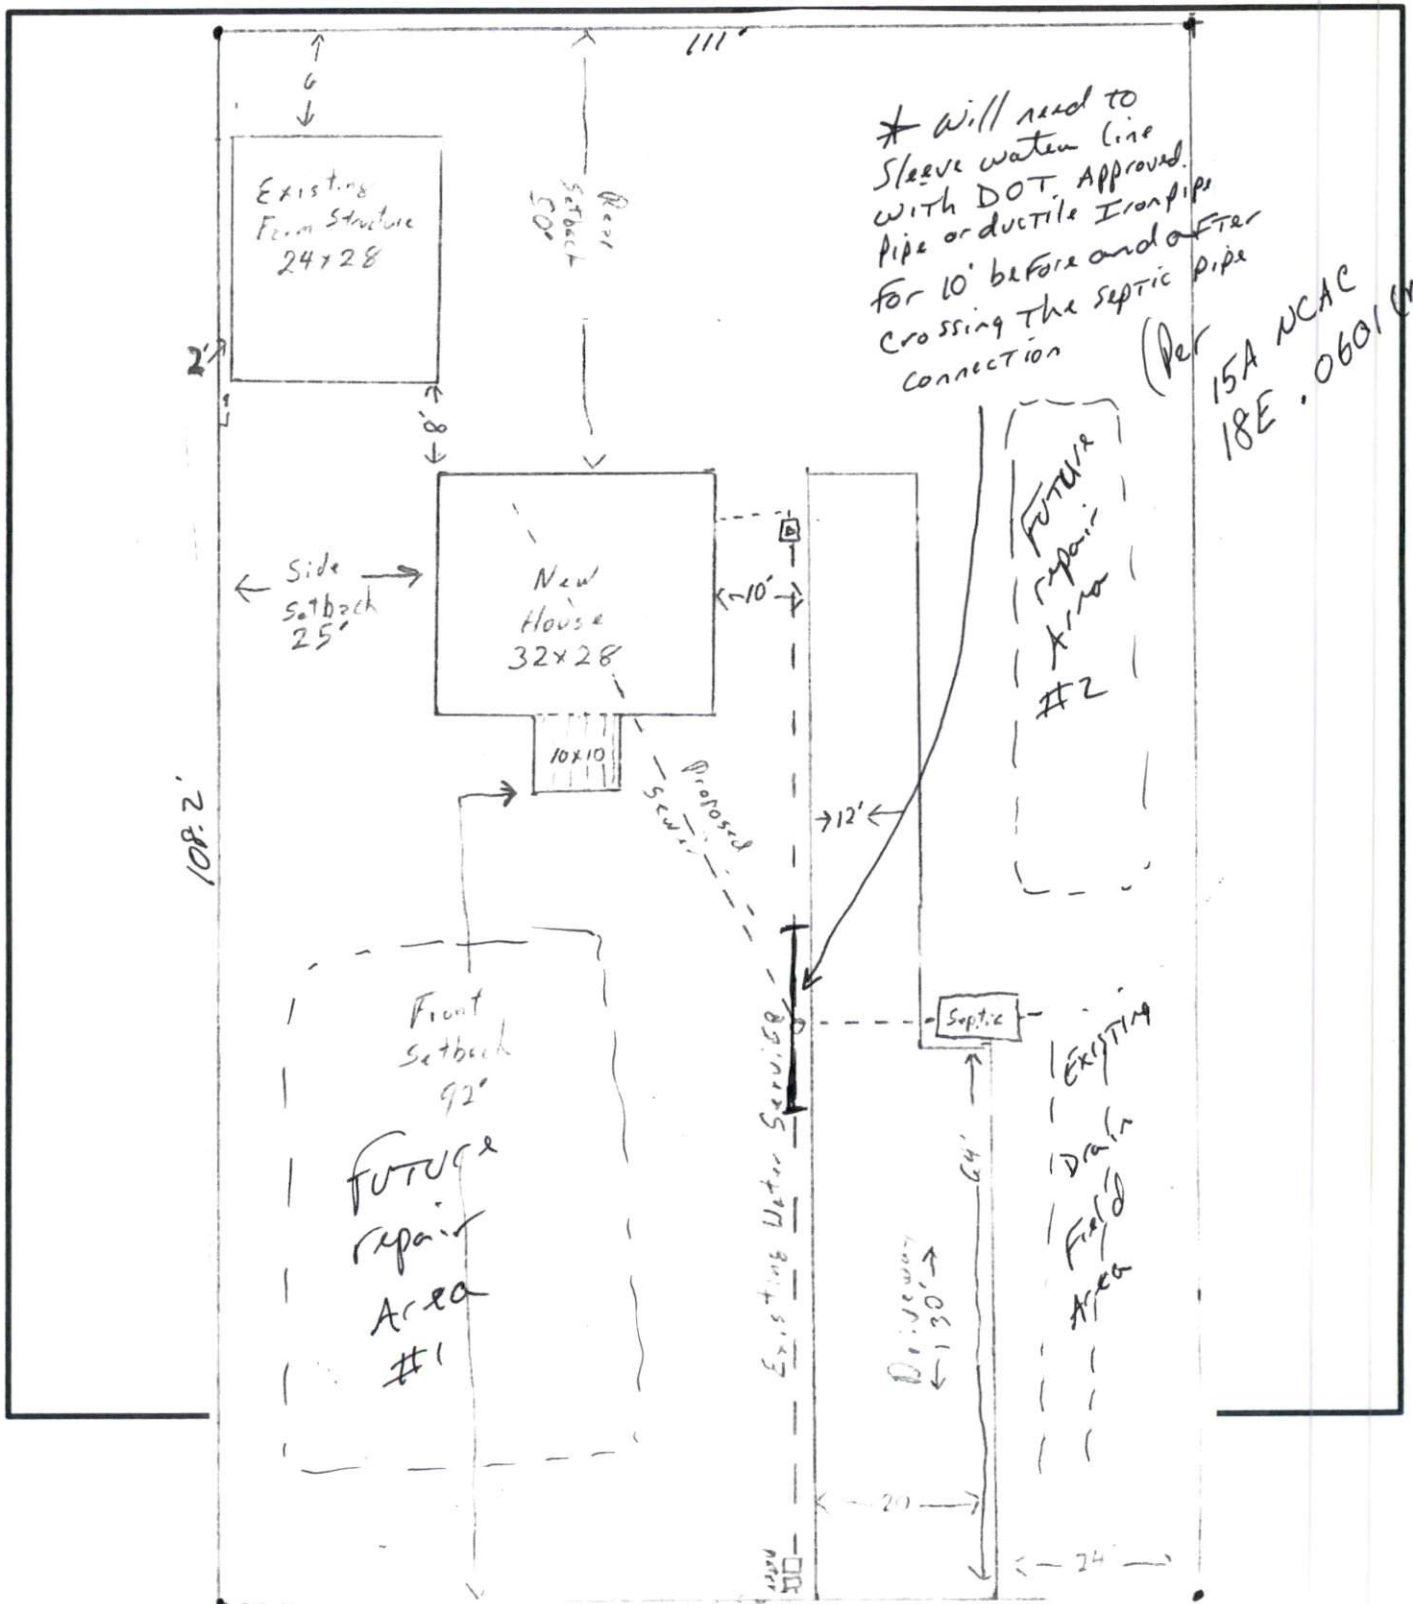 111'
6
Existing
Farm Structure
24x28
Rear
Setback
50'
* Will need to
Sleeve water line
with DOT Approved
Pipe or ductile Iron pipe
for 10' before and after
crossing the septic pipe
connection
(Per
15A NCAC
18E .0601
2'
8'
Side
Setback
25'
New
House
32x28
10x10
10'
Future
repair
Area
#2
Proposed
Sewer
12'
108.2'
Front
Setback
92'
Future
repair
Area
#1
Existing Water Service
Septic
Existing
Drain
Field
Area
64'
Driveway
130'
20
24